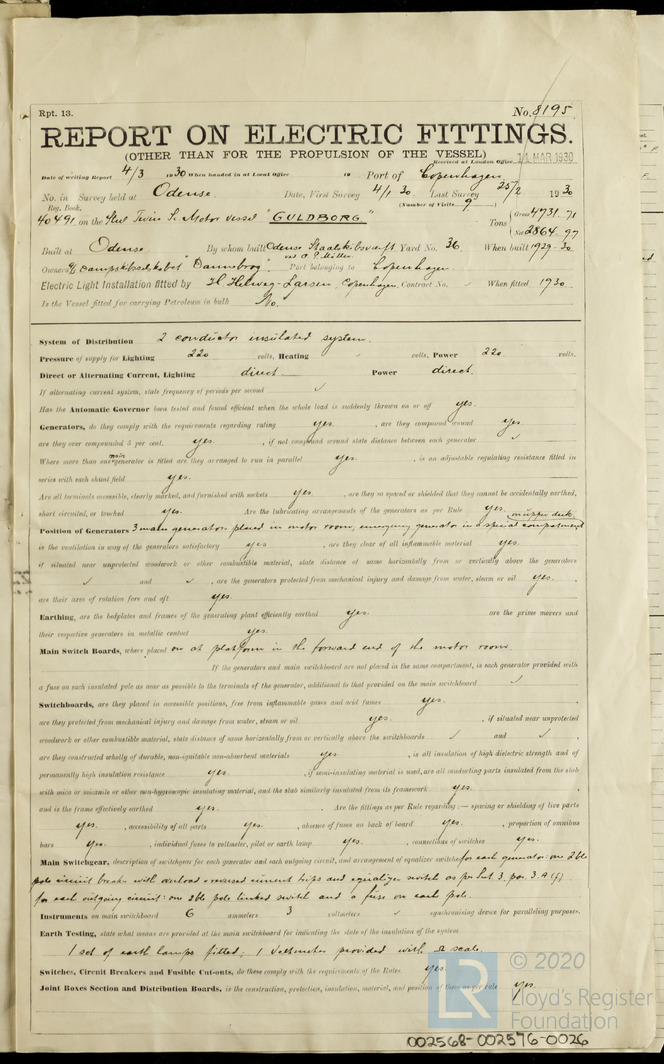 Rpt. 13. No. 8195
REPORT ON ELECTRIC FITTINGS.
(OTHER THAN FOR THE PROPULSION OF THE VESSEL) Received at London Office 14 MAR 1930
Date of writing Report 4/3 1930 When handed in at Local Office 19 Port of Copenhagen
No. in Survey held at Odense Date, First Survey 4/1 30 Last Survey 25/2 1930
Reg. Book. (Number of Visits 9)
40491 on the Steel Twin Sc. Motor vessel "GULDBORG" Tons { Gross 4731.71
Net 2864.97
Built at Odense By whom built Odense Staalskibsværft Yard No. 36 When built 1929-30
ved A. P. Möller
Owners Dampskibsselskabet "Dannebrog" Port belonging to Copenhagen
Electric Light Installation fitted by H. Helweg-Larsen, Copenhagen. Contract No. ✓ When fitted 1930
Is the Vessel fitted for carrying Petroleum in bulk No.
System of Distribution 2 conductor insulated system.
Pressure of supply for Lighting 220 volts, Heating ✓ volts, Power 220 volts.
Direct or Alternating Current, Lighting direct Power direct.
If alternating current system, state frequency of periods per second ✓
Has the Automatic Governor been tested and found efficient when the whole load is suddenly thrown on or off yes.
Generators, do they comply with the requirements regarding rating yes. , are they compound wound yes.
are they over compounded 5 per cent. yes. , if not compound wound state distance between each generator ✓
Where more than one main generator is fitted are they arranged to run in parallel yes. , is an adjustable regulating resistance fitted in
series with each shunt field yes.
Are all terminals accessible, clearly marked, and furnished with sockets yes. , are they so spaced or shielded that they cannot be accidentally earthed,
short circuited, or touched yes. Are the lubricating arrangements of the generators as per Rule yes. on upper deck.
Position of Generators 3 main generators placed in motor room, emergency generator in a special compartment
is the ventilation in way of the generators satisfactory yes. , are they clear of all inflammable material yes.
if situated near unprotected woodwork or other combustible material, state distance of same horizontally from or vertically above the generators
✓ and ✓ , are the generators protected from mechanical injury and damage from water, steam or oil yes.
are their axes of rotation fore and aft yes.
Earthing, are the bedplates and frames of the generating plant efficiently earthed yes. are the prime movers and
their respective generators in metallic contact yes.
Main Switch Boards, where placed on at platform in the forward end of the motor room
If the generators and main switchboard are not placed in the same compartment, is each generator provided with
a fuse on each insulated pole as near as possible to the terminals of the generator, additional to that provided on the main switchboard ✓
Switchboards, are they placed in accessible positions, free from inflammable gases and acid fumes yes.
are they protected from mechanical injury and damage from water, steam or oil yes. , if situated near unprotected
woodwork or other combustible material, state distance of same horizontally from or vertically above the switchboards ✓ and ✓
are they constructed wholly of durable, non-ignitable non-absorbent materials yes , is all insulation of high dielectric strength and of
permanently high insulation resistance yes. , if semi-insulating material is used, are all conducting parts insulated from the slab
with mica or micanite or other non-hygroscopic insulating material, and the slab similarly insulated from its framework yes.
and is the frame effectively earthed yes. Are the fittings as per Rule regarding:— spacing or shielding of live parts
yes. , accessibility of all parts yes. , absence of fuses on back of board yes. , proportion of omnibus
bars yes. , individual fuses to voltmeter, pilot or earth lamp yes. , connections of switches yes.
Main Switchgear, description of switchgear for each generator and each outgoing circuit, and arrangement of equalizer switches for each generator: one 2ble
pole circuit breaker with overload & reversed current trips and equalizer switch as per Sect 3 par 3.A (f)
for each outgoing circuit: one 2ble pole linked switch and a fuse on each pole.
Instruments on main switchboard 6 ammeters 3 voltmeters ✓ synchronising device for paralleling purposes.
Earth Testing, state what means are provided at the main switchboard for indicating the state of the insulation of the system
1 set of earth lamps fitted; 1 voltmeter provided with Ω scale.
Switches, Circuit Breakers and Fusible Cut-outs, do these comply with the requirements of the Rules yes.
Joint Boxes Section and Distribution Boards, is the construction, protection, insulation, material, and position of these as per rule yes.
LR © 2020
Lloyd's Register
Foundation
002568-002576-0026